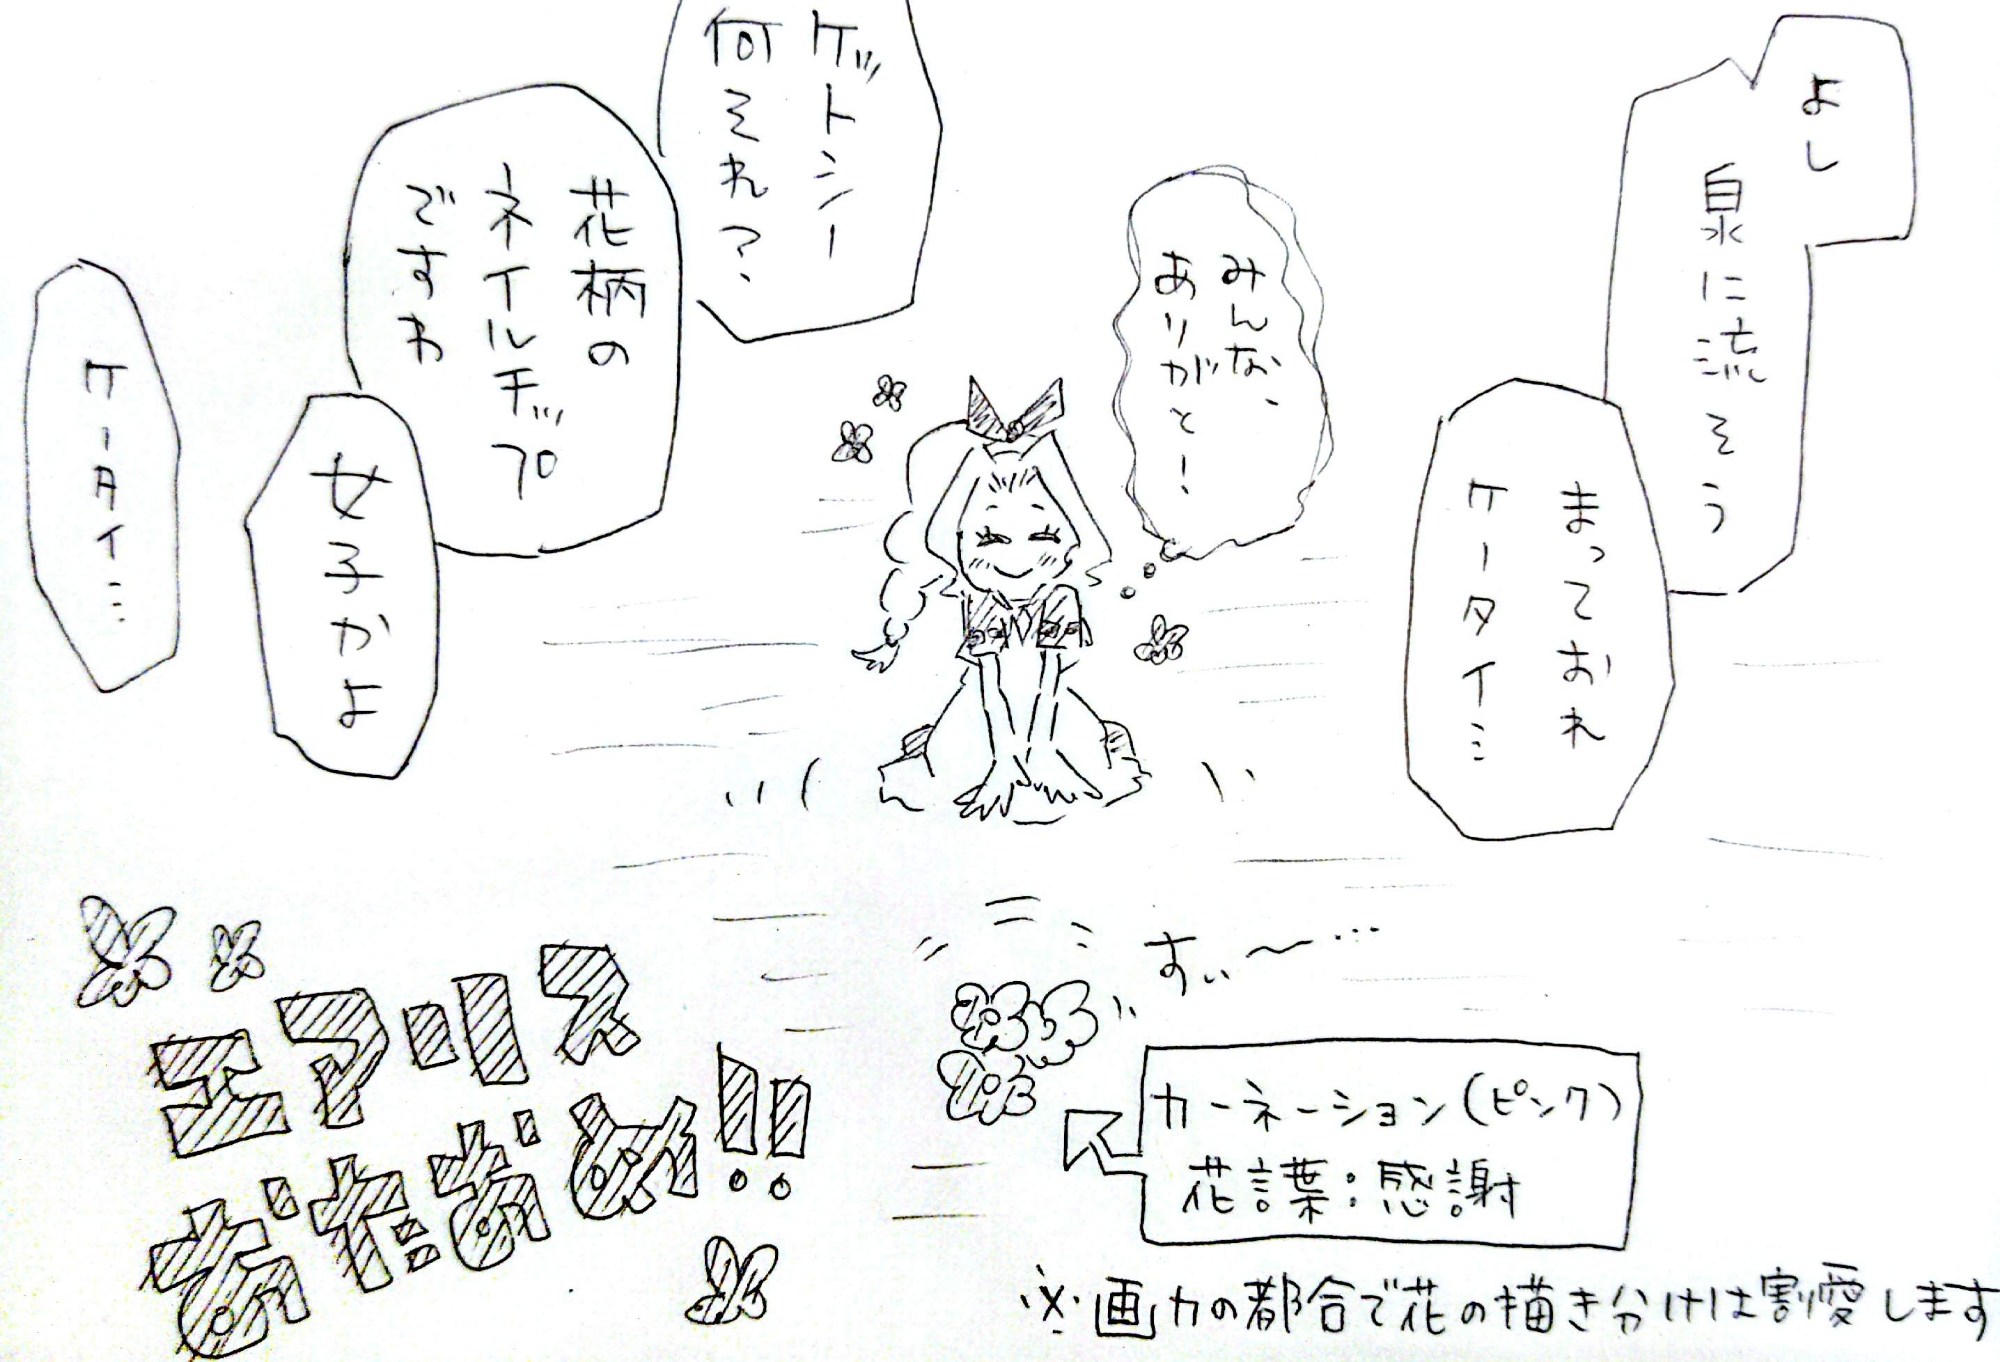 よし
泉に流そう
まっておれ
ケータイ…
みんな、
ありがと!
ケットシー
何それ?
花柄の
ネイルチップ
ですわ
女子かよ
ケータイ…
すぃ〜…
カーネーション(ピンク)
花言葉:感謝
※画力の都合で花の描き分けは割愛します
エアリス
おたおめ!!